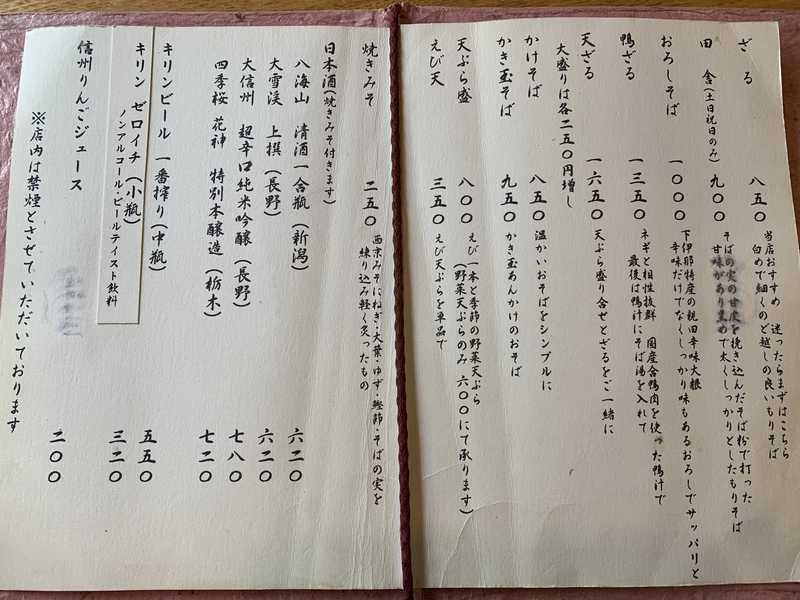 ざる 八五〇 当店おすすめ 迷ったらまずはこちら
白めで細くのど越しの良いもりそば
田舎(土日祝日のみ) 九〇〇 そばの実の甘皮を挽き込んだそば粉で打った
甘味があり黒めで太くしっかりとしたもりそば
おろしそば 一〇〇〇 下伊那特産の親田辛味大根
辛味だけでなくしっかり味もあるおろしでサッパリと
鴨ざる 一三五〇 ネギと相性抜群 国産合鴨肉を使った鴨汁で
最後は鴨汁にそば湯を入れて
天ざる 一六五〇 天ぷら盛り合せとざるをご一緒に
大盛りは各二五〇円増し
かけそば 八五〇 温かいおそばをシンプルに
かき玉そば 九五〇 かき玉あんかけのおそば
天ぷら盛 八〇〇 えび一本と季節の野菜天ぷら
(野菜天ぷらのみ 六〇〇にて承ります)
えび天 三五〇 えび天ぷらを単品で
焼きみそ 二五〇 西京みそにねぎ・大葉・ゆず・鰹節・そばの実を
練り込み軽く炙ったもの
日本酒(焼きみそ付きます)
八海山 清酒一合瓶(新潟) 六二〇
大雪渓 上撰(長野) 六二〇
大信州 超辛口純米吟醸(長野) 七八〇
四季桜 花神 特別本醸造(栃木) 七二〇
キリンビール 一番搾り(中瓶) 五五〇
キリン ゼロイチ(小瓶) 三二〇
ノンアルコール・ビールテイスト飲料
信州りんごジュース 二〇〇
※店内は禁煙とさせていただいております